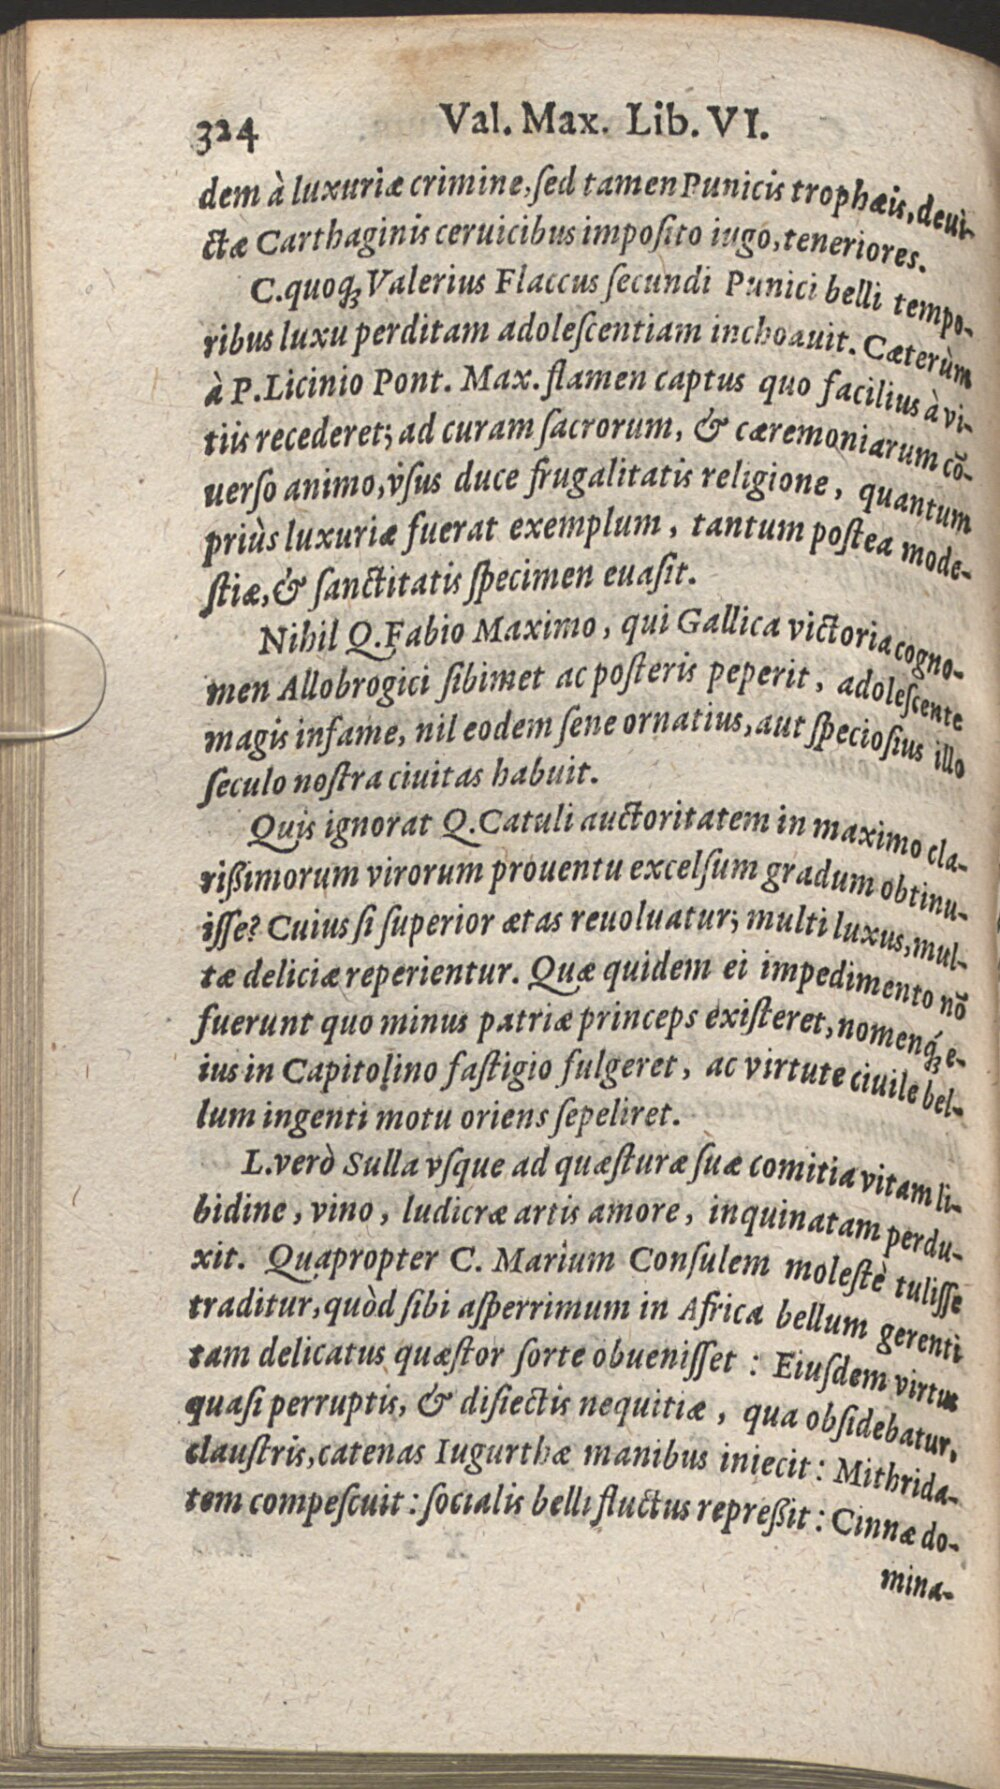 324 Val. Max. Lib. VI.
dem à luxuriæ crimine, ſed tamen Punicis trophæis, deui-
ctæ Carthaginis ceruicibus impoſito iugo, teneriores.
C. quoq; Valerius Flaccus ſecundi Punici belli tempo-
ribus luxu perditam adoleſcentiam inchoauit. Cæterùm
à P. Licinio Pont. Max. flamen captus quo facilius à vi-
tiis recederet; ad curam ſacrorum, & cæremoniarum cō-
uerſo animo, vſus duce frugalitatis religione, quantum
priùs luxuriæ fuerat exemplum, tantum poſtea mode-
ſtiæ, & ſanctitatis ſpecimen euaſit.
Nihil Q. Fabio Maximo, qui Gallica victoria cogno-
men Allobrogici ſibimet ac poſteris peperit, adoleſcente
magis infame, nil eodem ſene ornatius, aut ſpecioſius illo
ſeculo noſtra ciuitas habuit.
Quis ignorat Q. Catuli auctoritatem in maximo cla-
rißimorum virorum prouentu excelſum gradum obtinu-
iſſe? Cuius ſi ſuperior ætas reuoluatur; multi luxus, mul-
tæ deliciæ reperientur. Quæ quidem ei impedimento nō
fuerunt quo minus patriæ princeps exiſteret, nomenq́; e-
ius in Capitolino faſtigio fulgeret, ac virtute ciuile bel-
lum ingenti motu oriens ſepeliret.
L. verò Sulla vſque ad quæſturæ ſuæ comitia vitam li-
bidine, vino, ludicræ artis amore, inquinatam perdu-
xit. Quapropter C. Marium Conſulem moleſtè tuliſſe
traditur, quòd ſibi aſperrimum in Africa bellum gerenti
tam delicatus quæſtor ſorte obueniſſet : Eiuſdem virtus
quaſi perruptis, & diſiectis nequitiæ, qua obſidebatur,
clauſtris, catenas Iugurthæ manibus iniecit : Mithrida-
tem compeſcuit : ſocialis belli fluctus repreßit : Cinnæ do-
mina-